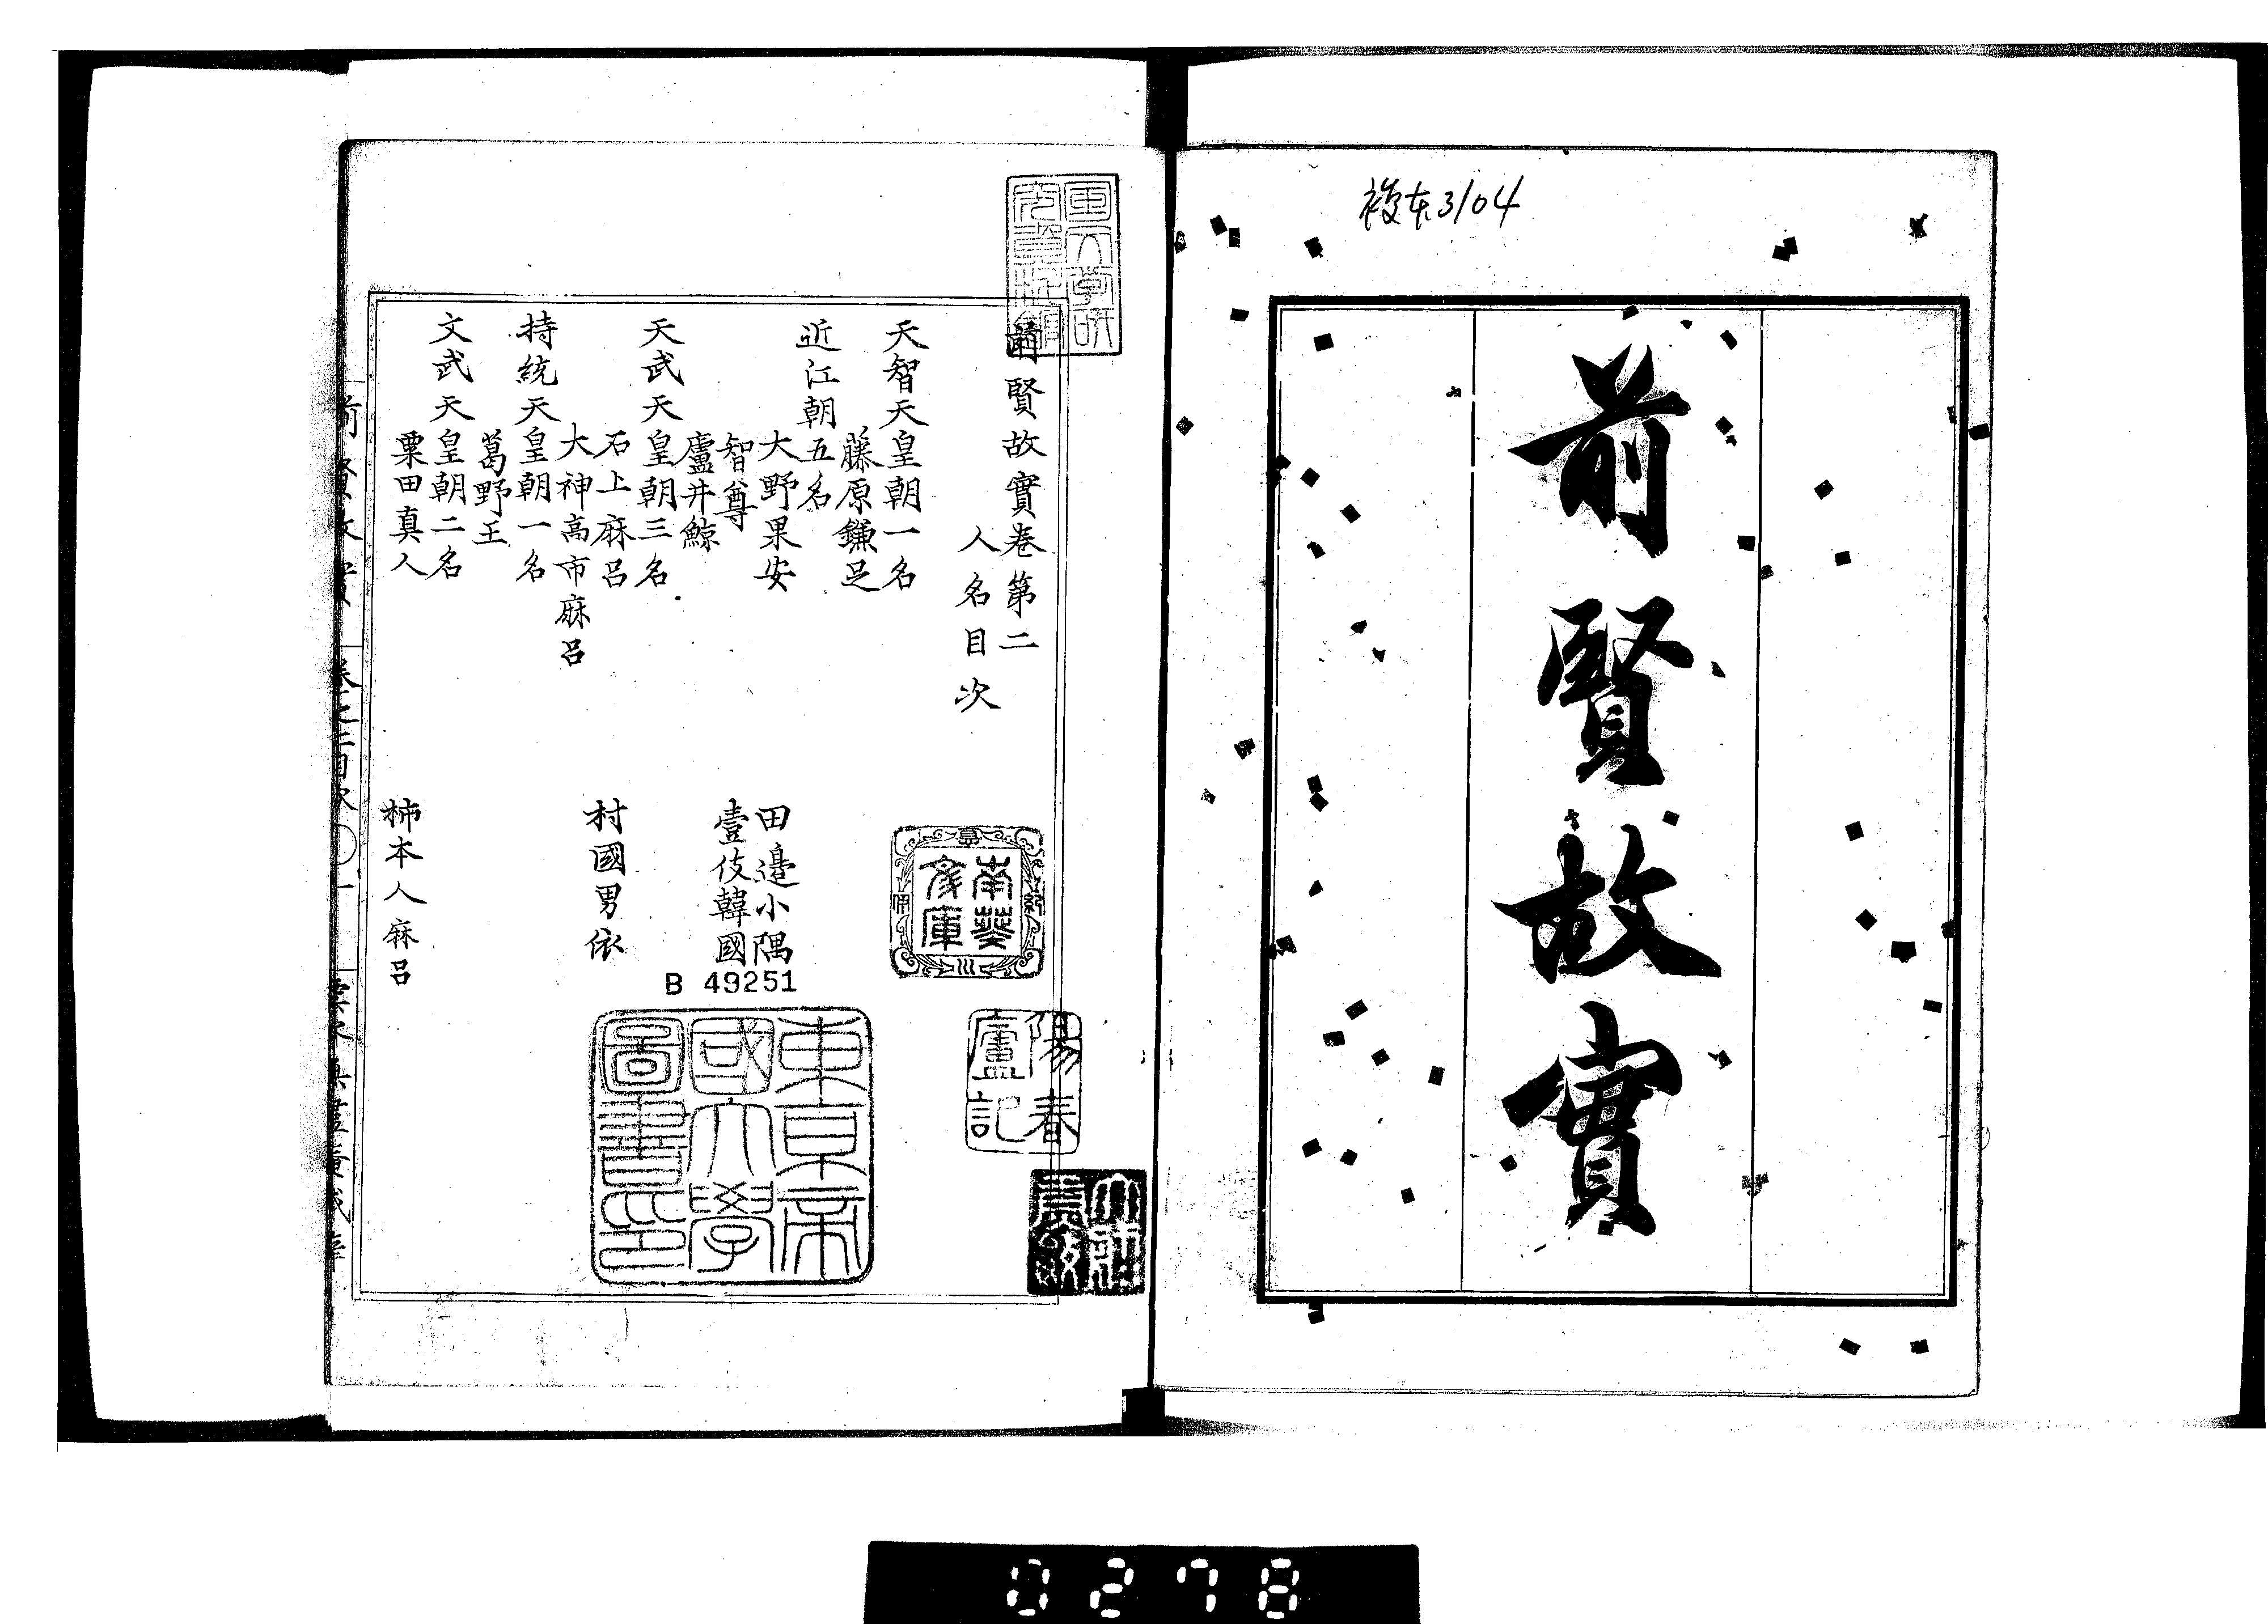 複本3104
前賢故實
前賢故實卷第二
人名目次
天智天皇朝一名
藤原鎌足
近江朝五名
大野果安
田邉小隅
智尊
壹伎韓國
廬井鯨
天武天皇朝三名
石上麻呂
村國男依
大神高市麻呂
持統天皇朝一名
葛野王
文武天皇朝二名
粟田真人
柿本人麻呂
南葵文庫
陽春廬記
B 49251
東京帝國大學圖書印
0278